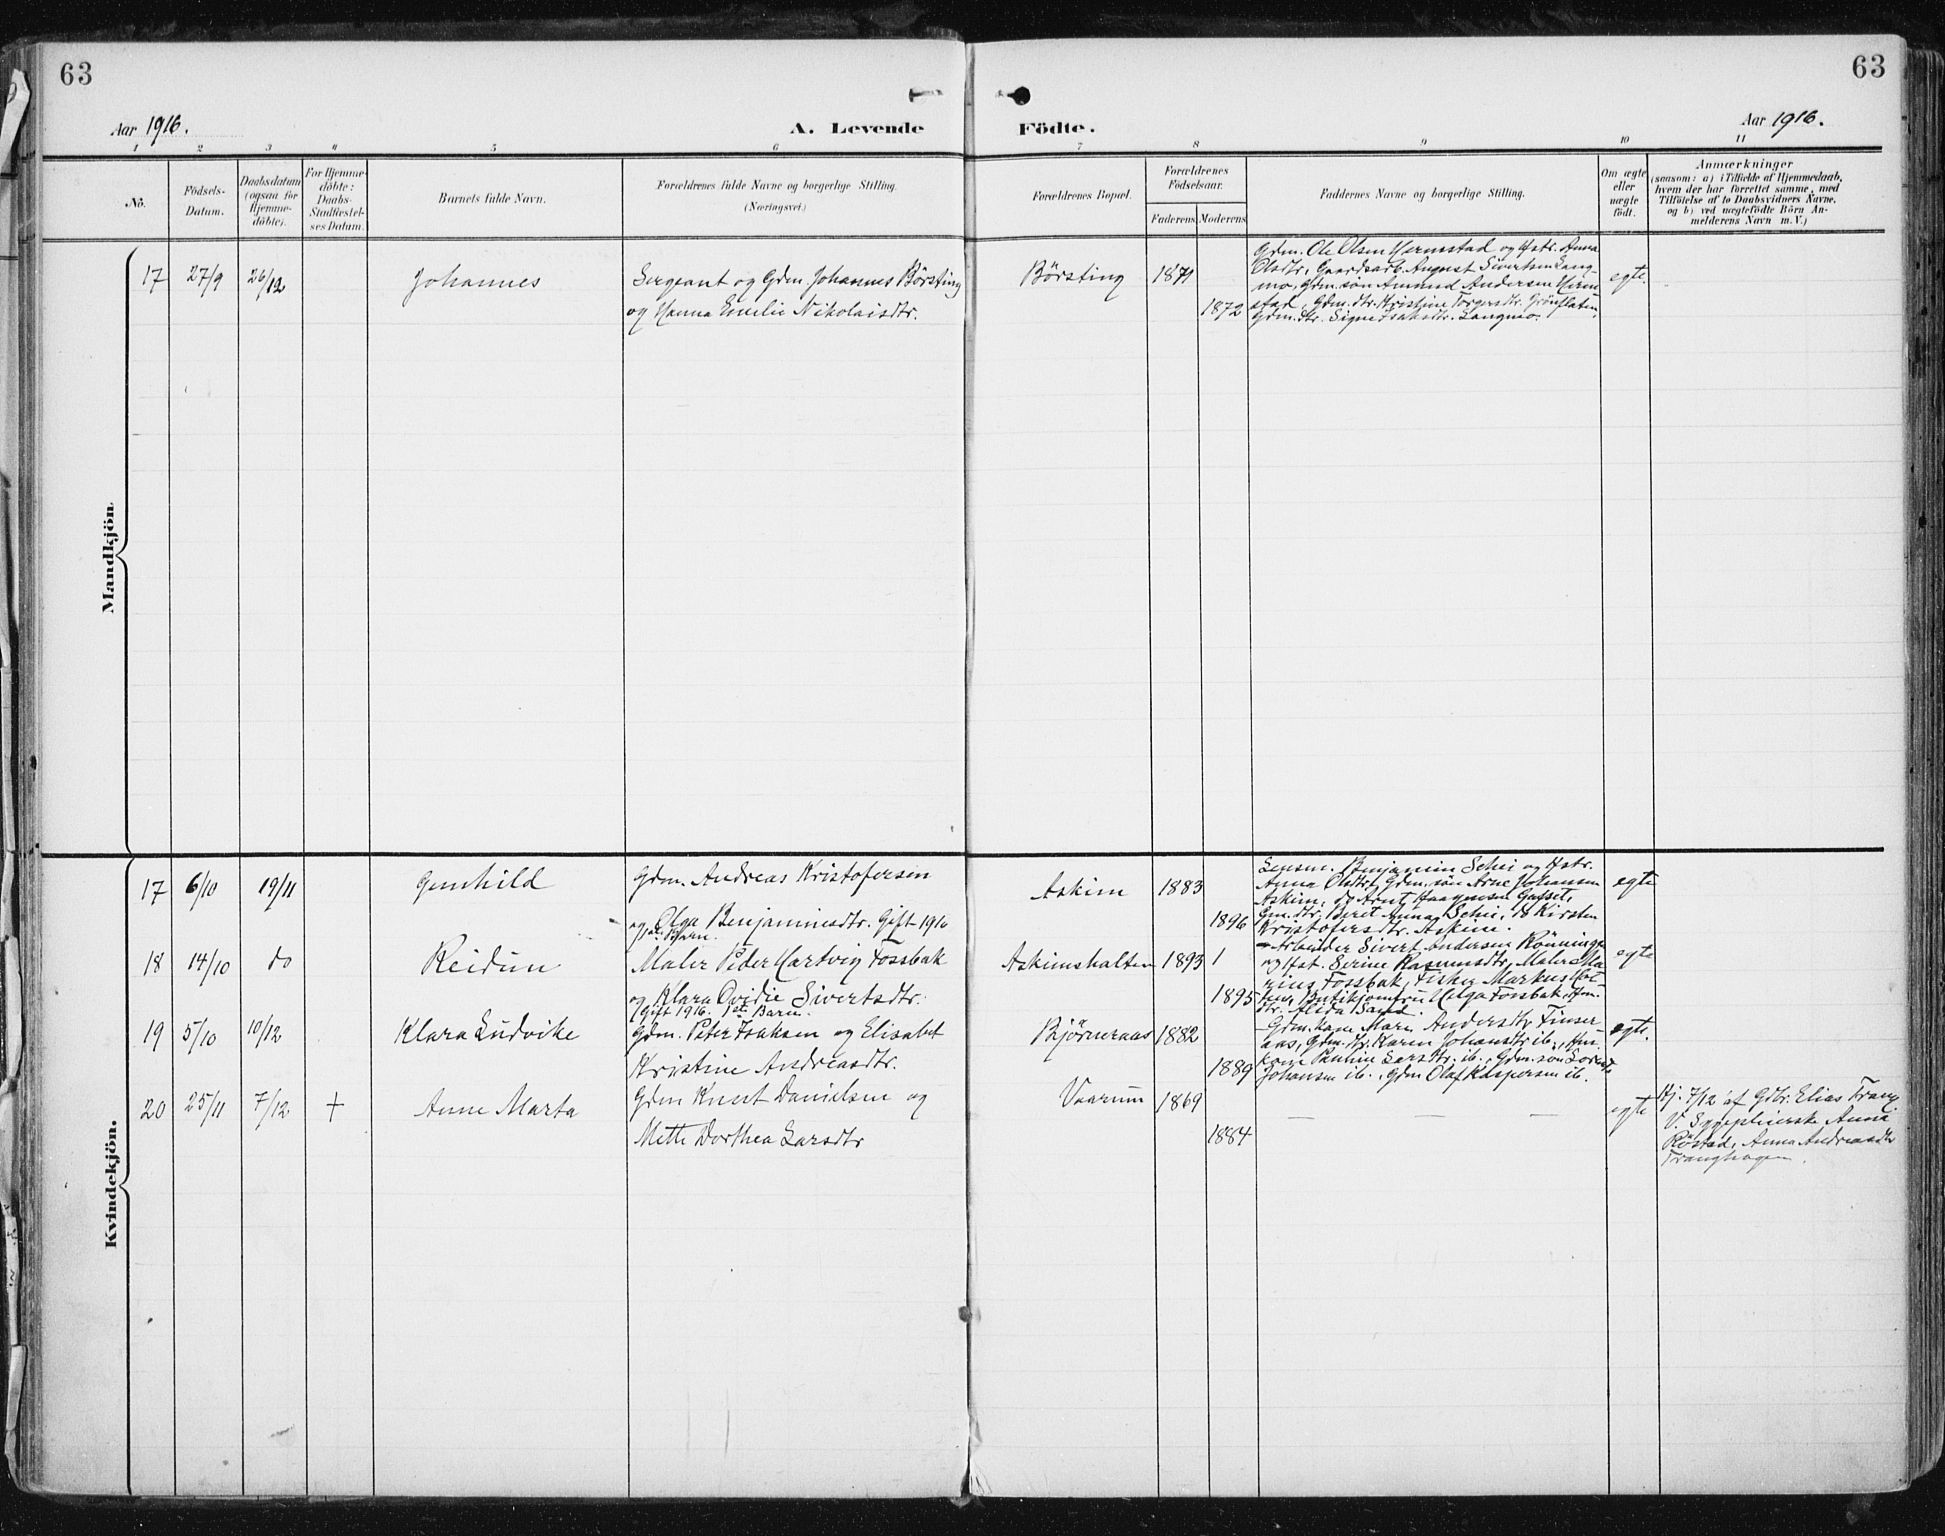 63
63
Aar 1916.
A. Levende Födte.
Aar 1916.
1 2 3 4 5 6 7 8 9 10 11
No.
Födsels-Datum.
Daabsdatum (ogsaa for Hjemme-döbte).
For Hjemme-döbte: Daabs-Stadfæstel-ses Datum.
Barnets fulde Navn.
Forældrenes fulde Navne og borgerlige Stilling.
(Næringsvei.)
Forældrenes Bopæl.
Forældrenes Födselsaar.
Faderens Moderens
Faddernes Navne og borgerlige Stilling.
Om ægte eller uægte født.
Anmærkninger
(saasom: a) i Tilfælde af Hjemmedaab,
hvem der har forrettet samme, med
Tilföielse af to Daabsvidners Navne,
og b) ved uægtefödte Börn An-
melderens Navn m. V.)
Mandkjön.
17 27/9 26/12 Johannes
Sergeant og Gdm. Johannes Börsting
og Hanna Emelie Nikolaisdtr.
Börsting 1871
1872
Gdm. Ole Olsen Hermstad og Hstr. Anna
Olsdtr, Gaardsarb. August Sivertsen Lang-
mo, Gdm. sön Amund Andersen Herm-
stad, Gdm. dtr. Kristine Torgersdtr. Grönflaten,
Gdm. dtr. Signe Isaksdtr. Langmo.
egte.
Kvindekjön.
17 6/10 19/11 Gunhild
Gdm. Andreas Kristofersen
og Olga Benjaminsdtr. Gift 1916
1ste Barn.
Askim 1883
1896
Lensm. Benjamin Schei og Hstr.
Anna Olsdtr, Gdm. sön Arne Johansen
Askim, do Arnt Haagensen Gafset,
Gm. dtr. Beret Anna Schei, do Kirsten
Kristofersdtr. Askim.
egte
18 14/10 do Reidun
Maler Peder Hartvig Fossbak
og Klara Ovidie Sivertsdtr.
Gift 1916. 1ste Barn.
Askimshalten 1893 1
1895
Arbeider Sivert Andersen Rönningen
og Hst. Serine Rasmusdtr, Maler Ma-
rius Fossbak, Fisker Markus
Butikjomfru Helga Fossbak,
dtr. Alida Sand.
egte
19 5/10 10/12 Klara Ludvike
Gdm. Peter Isaksen og Elisabet
Kristine Andreasdtr.
Bjørneraas 1882
1889
Gdm. kone Marie Andersdtr
aas, Gdm. dtr. Karen Johansdtr ib.,
kone Pauline Larsdtr. ib., Gdm. sön Lorents
Johansen ib., Gdm Olaf Kaspersen ib.
egte.
20 25/11 7/12 + Anne Marta
Gdm Knut Danielsen og
Mette Dorthea Larsdtr
Vaarum 1869
1884
— — —
egte
Hj. 7/12 af Gdbr. Elias Trang
V. Sygepleierske Anna
Röstad, Anna Andreasdtr
Tranghagen.